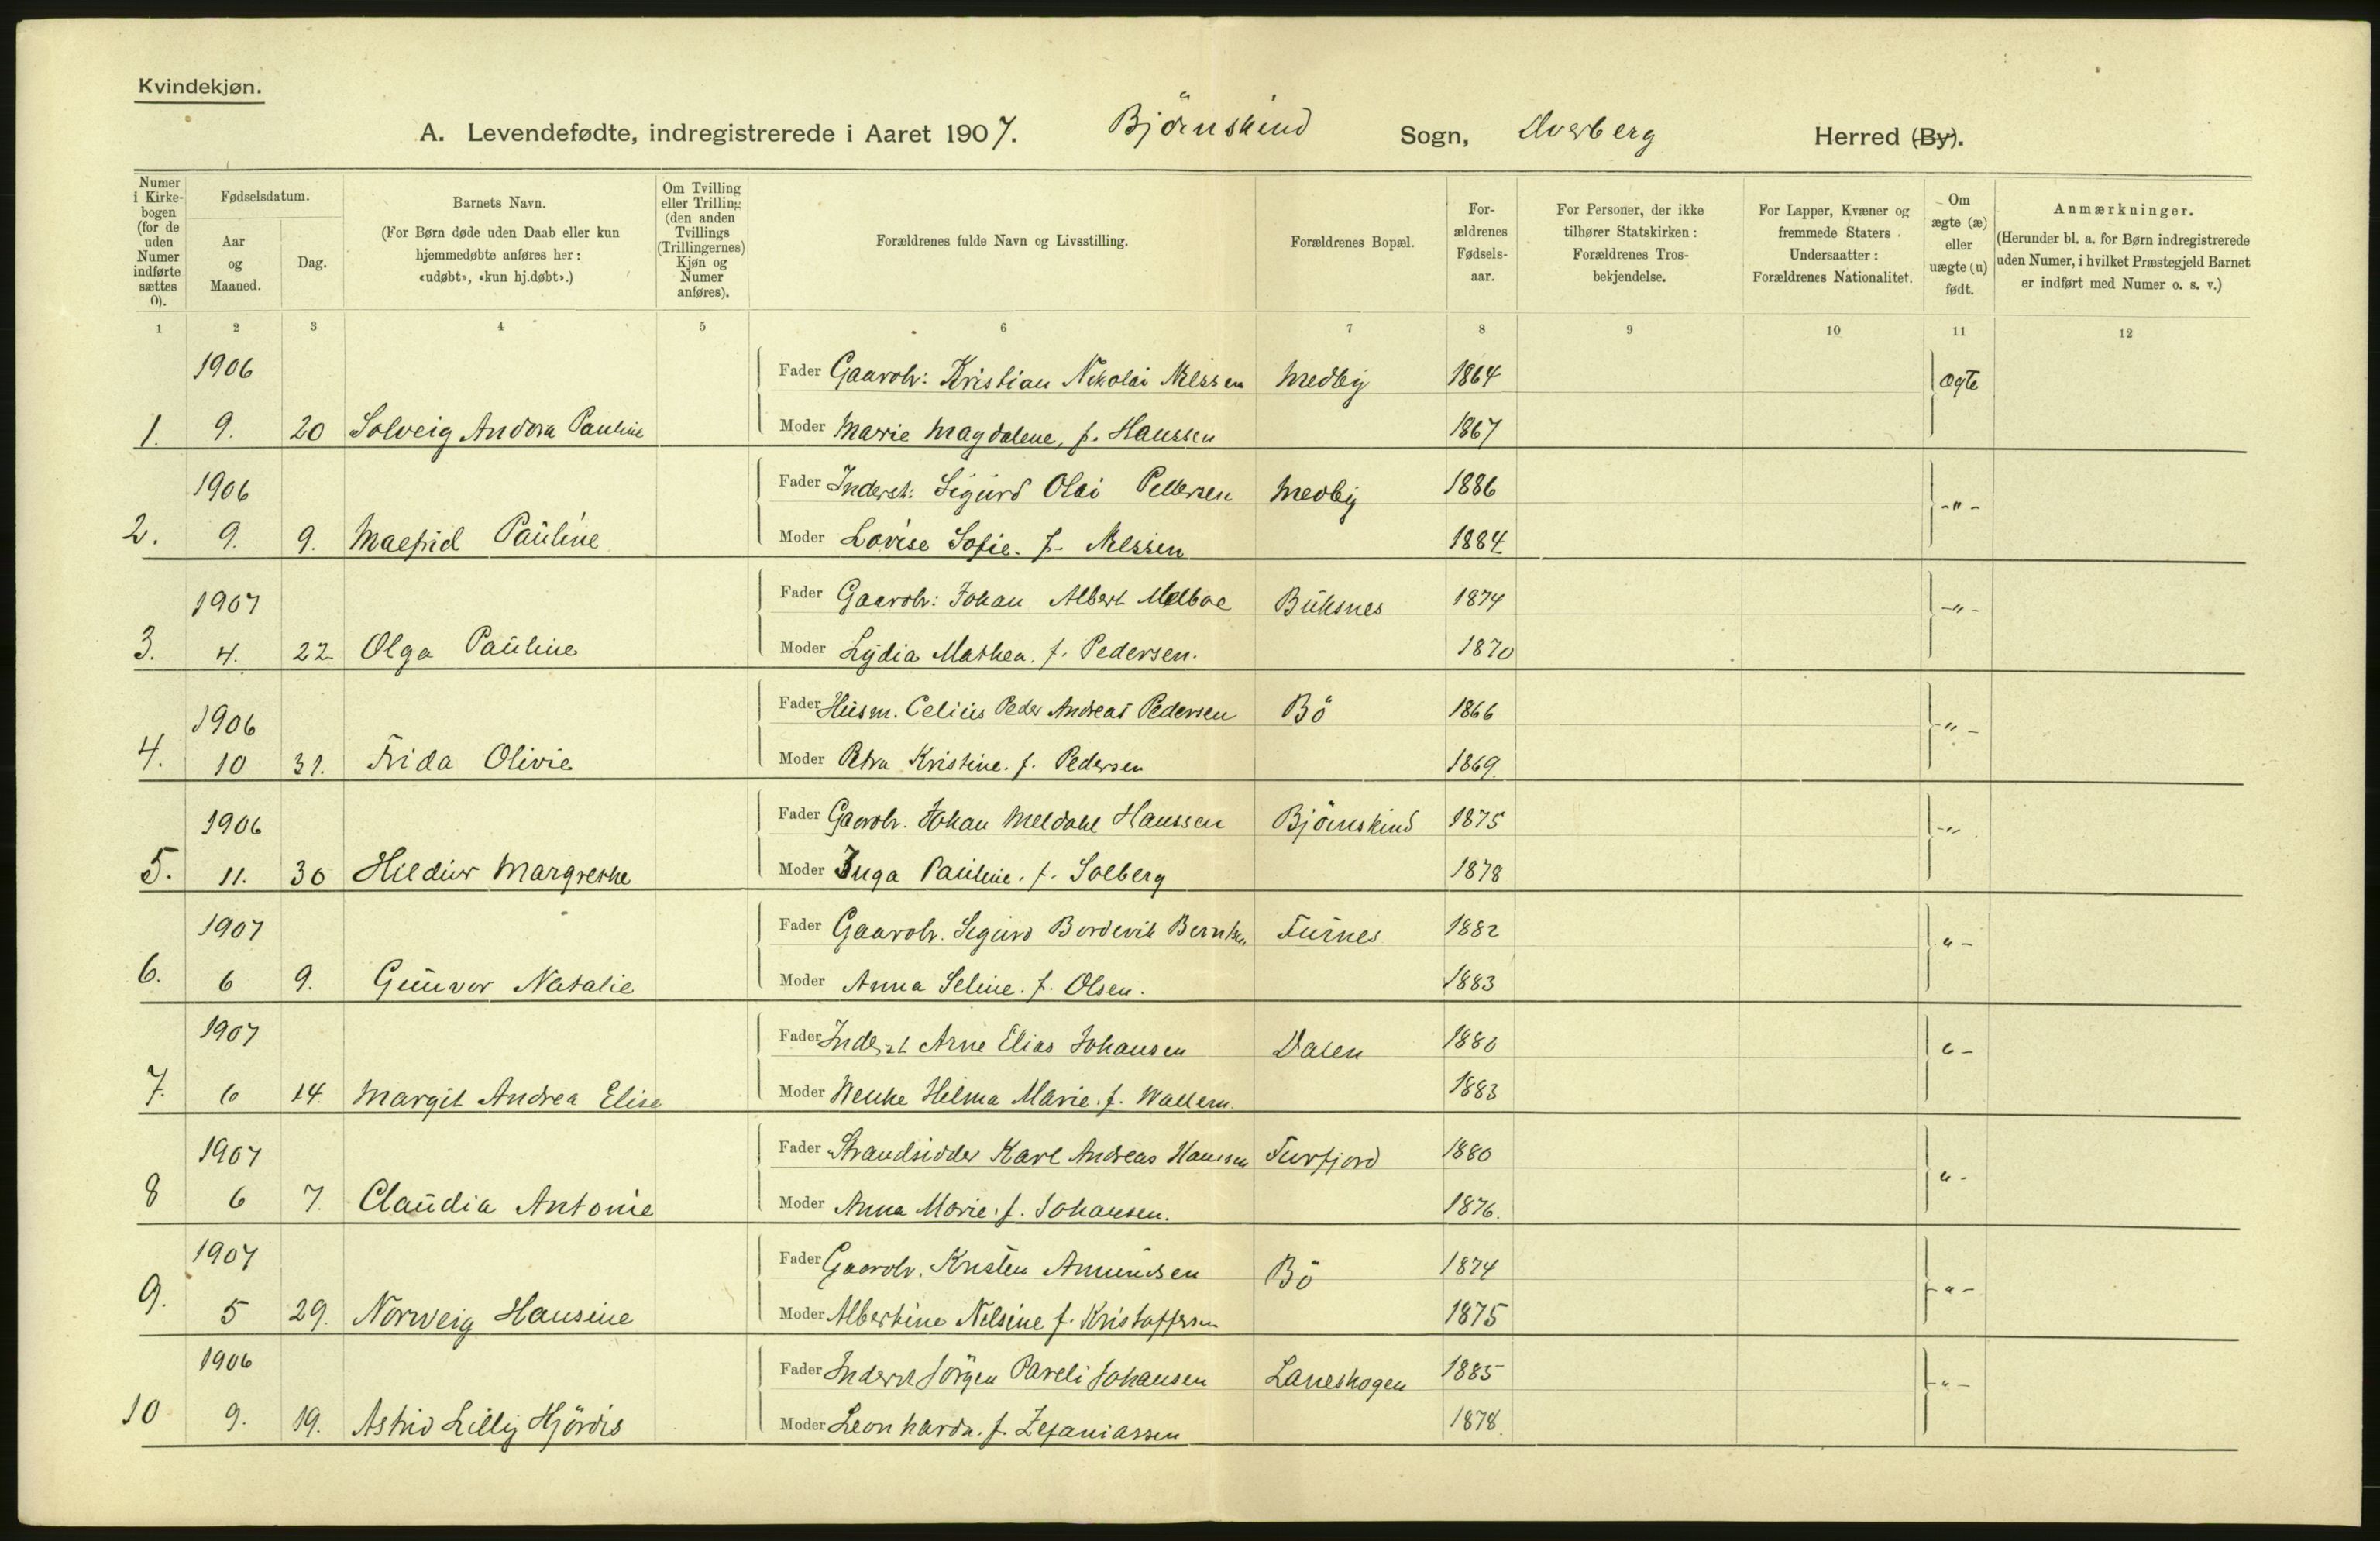 Kvindekjøn.
A. Levendefødte, indregistrerede i Aaret 1907. Björnskind Sogn, Dverberg Herred (By).
Numer i Kirkebogen (for de uden Numer indførte sættes 0).
Fødselsdatum.
Aar og Maaned.
Dag.
Barnets Navn.
(For Børn døde uden Daab eller kun hjemmedøbte anføres her: «udøbt», «kun hj.døbt».)
Om Tvilling eller Trilling (den anden Tvillings (Trillingernes) Kjøn og Numer anføres).
Forældrenes fulde Navn og Livsstilling.
Forældrenes Bopæl.
Forældrenes Fødselsaar.
For Personer, der ikke tilhører Statskirken: Forældrenes Trosbekjendelse.
For Lapper, Kvæner og fremmede Staters Undersaatter: Forældrenes Nationalitet.
Om ægte (æ) eller uægte (u) født.
Anmærkninger.
(Herunder bl. a. for Børn indregistrerede uden Numer, i hvilket Præstegjeld Barnet er indført med Numer o. s. v.)
1 2 3 4 5 6 7 8 9 10 11 12
1906 Fader Gaarobr: Kristian Nikolai Nilssen Medby 1864 ægte
1. 9. 20 Solveig Andora Pauline Moder Marie Magdalene, f. Hanssen 1867
1906 Fader Inderst: Sigurd Olai Pettersen Medby 1886 -"-
2. 9. 9. Pauline Moder Lovise Sofie. f. Nilssen 1884
1907 Fader Gaarobr: Johan Albert Melboe Buksnes 1874 -"-
3. 4. 22. Olga Pauline Moder Lydia Mathea. f. Pedersen. 1870
1906 Fader Husm. Celius Peder Andreas Pedersen Bö 1866 -"-
4. 10 31. Frida Olivie Moder Petra Kristine. f. Pedersen 1869.
1906 Fader Gaarobr. Johan Meldahl Hanssen Björnskind 1875 -"-
5. 11. 30 Hildur Margrethe Moder Inga Pauline. f. Solberg 1878
1907 Fader Gaarobr. Sigurd Bordevik Berntsen Furnes 1882 "-
6. 6 9. Gunvor Natalie Moder Anna Seline. f. Olsen. 1883
1907 Fader Inderst Arne Elias Johansen Dalen 1880 "-
7. 6 14. Margit Andrea Elise Moder Wenke Hilma Marie. f. Wallem. 1883
1907 Fader Strandsidder Karl Andreas Hanssen Furfjord 1880 "-
8 6 7. Claudia Antonie Moder Anna Marie. f. Johansen. 1876.
1907 Fader Gaarobr. Kristen Amundsen Bö 1874 -"-
9. 5 29. Norveig Hansine Moder Albertine Nilsine f. Kristoffersen 1875
1906 Fader Inderst Jörgen Pareli Johansen Laneskogen 1885 -"-
10 9. 19. Astrid Lilly Hjördis Moder Leonharda. f. Zefaniassen 1878.